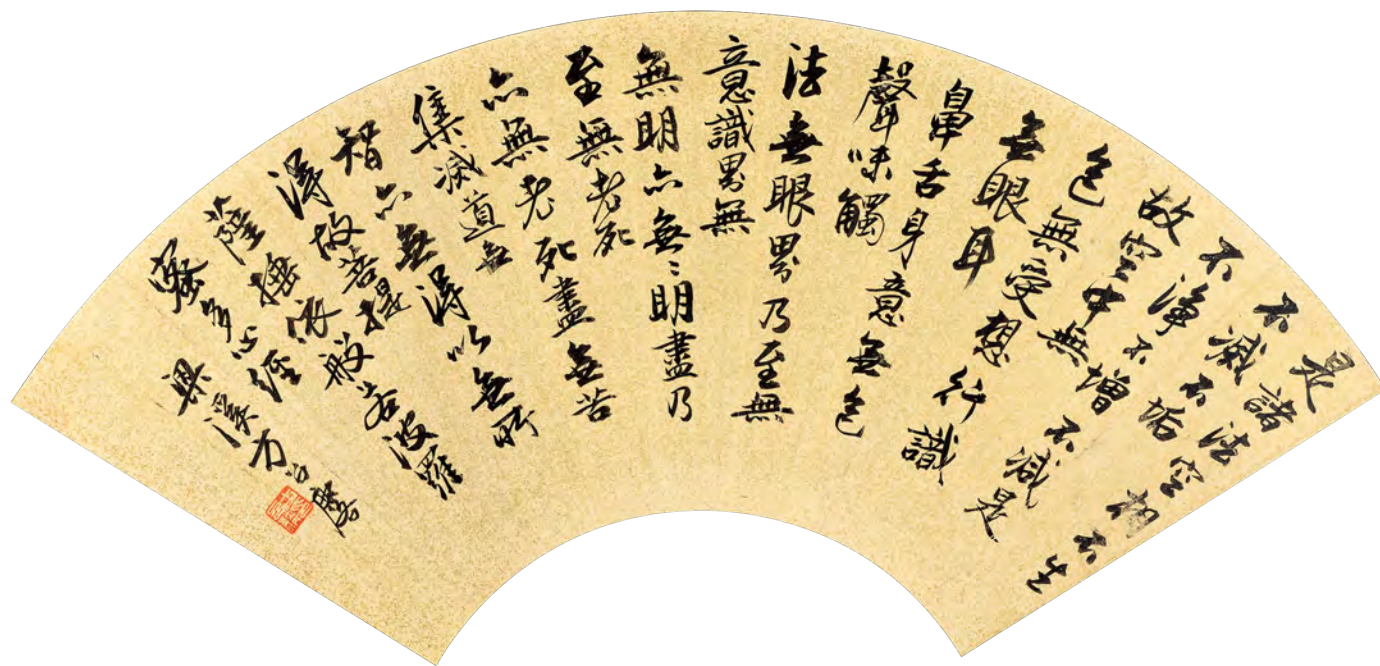 是諸法空相不生
不滅不垢
不淨不增不減是
故空中無
色無受想行識
無眼耳
鼻舌身意無色
聲味觸
法無眼界乃至無
意識界無
無明亦無〻明盡乃
至無老死
亦無老死盡無苦
集滅道無
智亦無得以無所
得故菩提
薩埵依般若波羅
蜜多心經
梁溪方